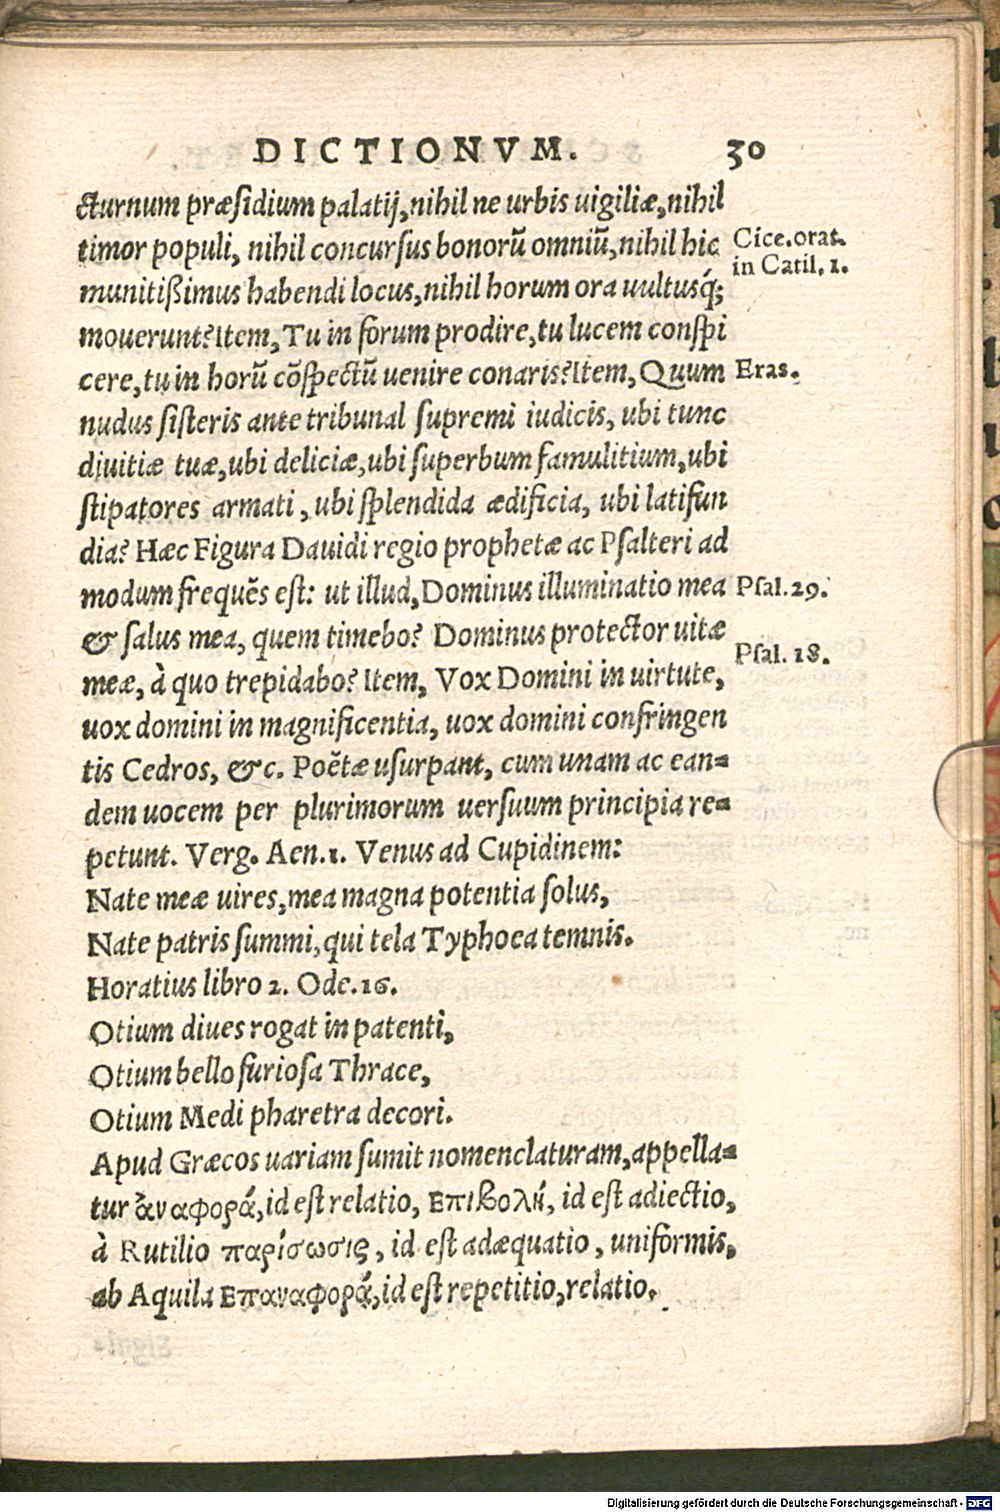 DICTIONVM. 30
cturnum præsidium palatij, nihil ne urbis uigiliæ, nihil
timor populi, nihil concursus bonorũ omniũ, nihil hic
Cice. orat.
in Catil. 1.
munitißimus habendi locus, nihil horum ora uultusq́;
mouerunt? Item, Tu in forum prodire, tu lucem conspi
cere, tu in horũ cõspectũ uenire conaris? Item, Quum
Eras.
nudus sisteris ante tribunal supremi iudicis, ubi tunc
diuitiæ tuæ, ubi deliciæ, ubi superbum famulitium, ubi
stipatores armati, ubi splendida ædificia, ubi latifun
dia? Hæc Figura Dauidi regio prophetæ ac Psalteri ad
modum frequẽs est: ut illud, Dominus illuminatio mea
Psal. 29.
& salus mea, quem timebo? Dominus protector uitæ
Psal. 18.
meæ, à quo trepidabo? Item, Vox Domini in uirtute,
uox domini in magnificentia, uox domini confringen
tis Cedros, &c. Poẽtæ usurpant, cum unam ac ean-
dem uocem per plurimorum uersuum principia re-
petunt. Verg. Aen. 1. Venus ad Cupidinem:
Nate meæ uires, mea magna potentia solus,
Nate patris summi, qui tela Typhoea temnis.
Horatius libro 2. Ode. 16.
Otium diues rogat in patenti,
Otium bello furiosa Thrace,
Otium Medi pharetra decori.
Apud Græcos uariam sumit nomenclaturam, appella-
tur ἀναφορά, id est relatio, Επιβολή, id est adiectio,
à Rutilio παρίσωσις, id est adæquatio, uniformis,
ab Aquila Επαναφορά, id est repetitio, relatio.
Digitalisierung gefördert durch die Deutsche Forschungsgemeinschaft - DFG